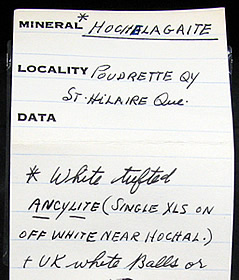 MINERAL * HOCHELAGAITE
LOCALITY POUDRETTE QY
ST. HILAIRE QUE.
DATA
* White tufted
ANCYLITE (SINGLE XLS ON
OFF WHITE NEAR HOCHAL.)
+ UK white Balls or